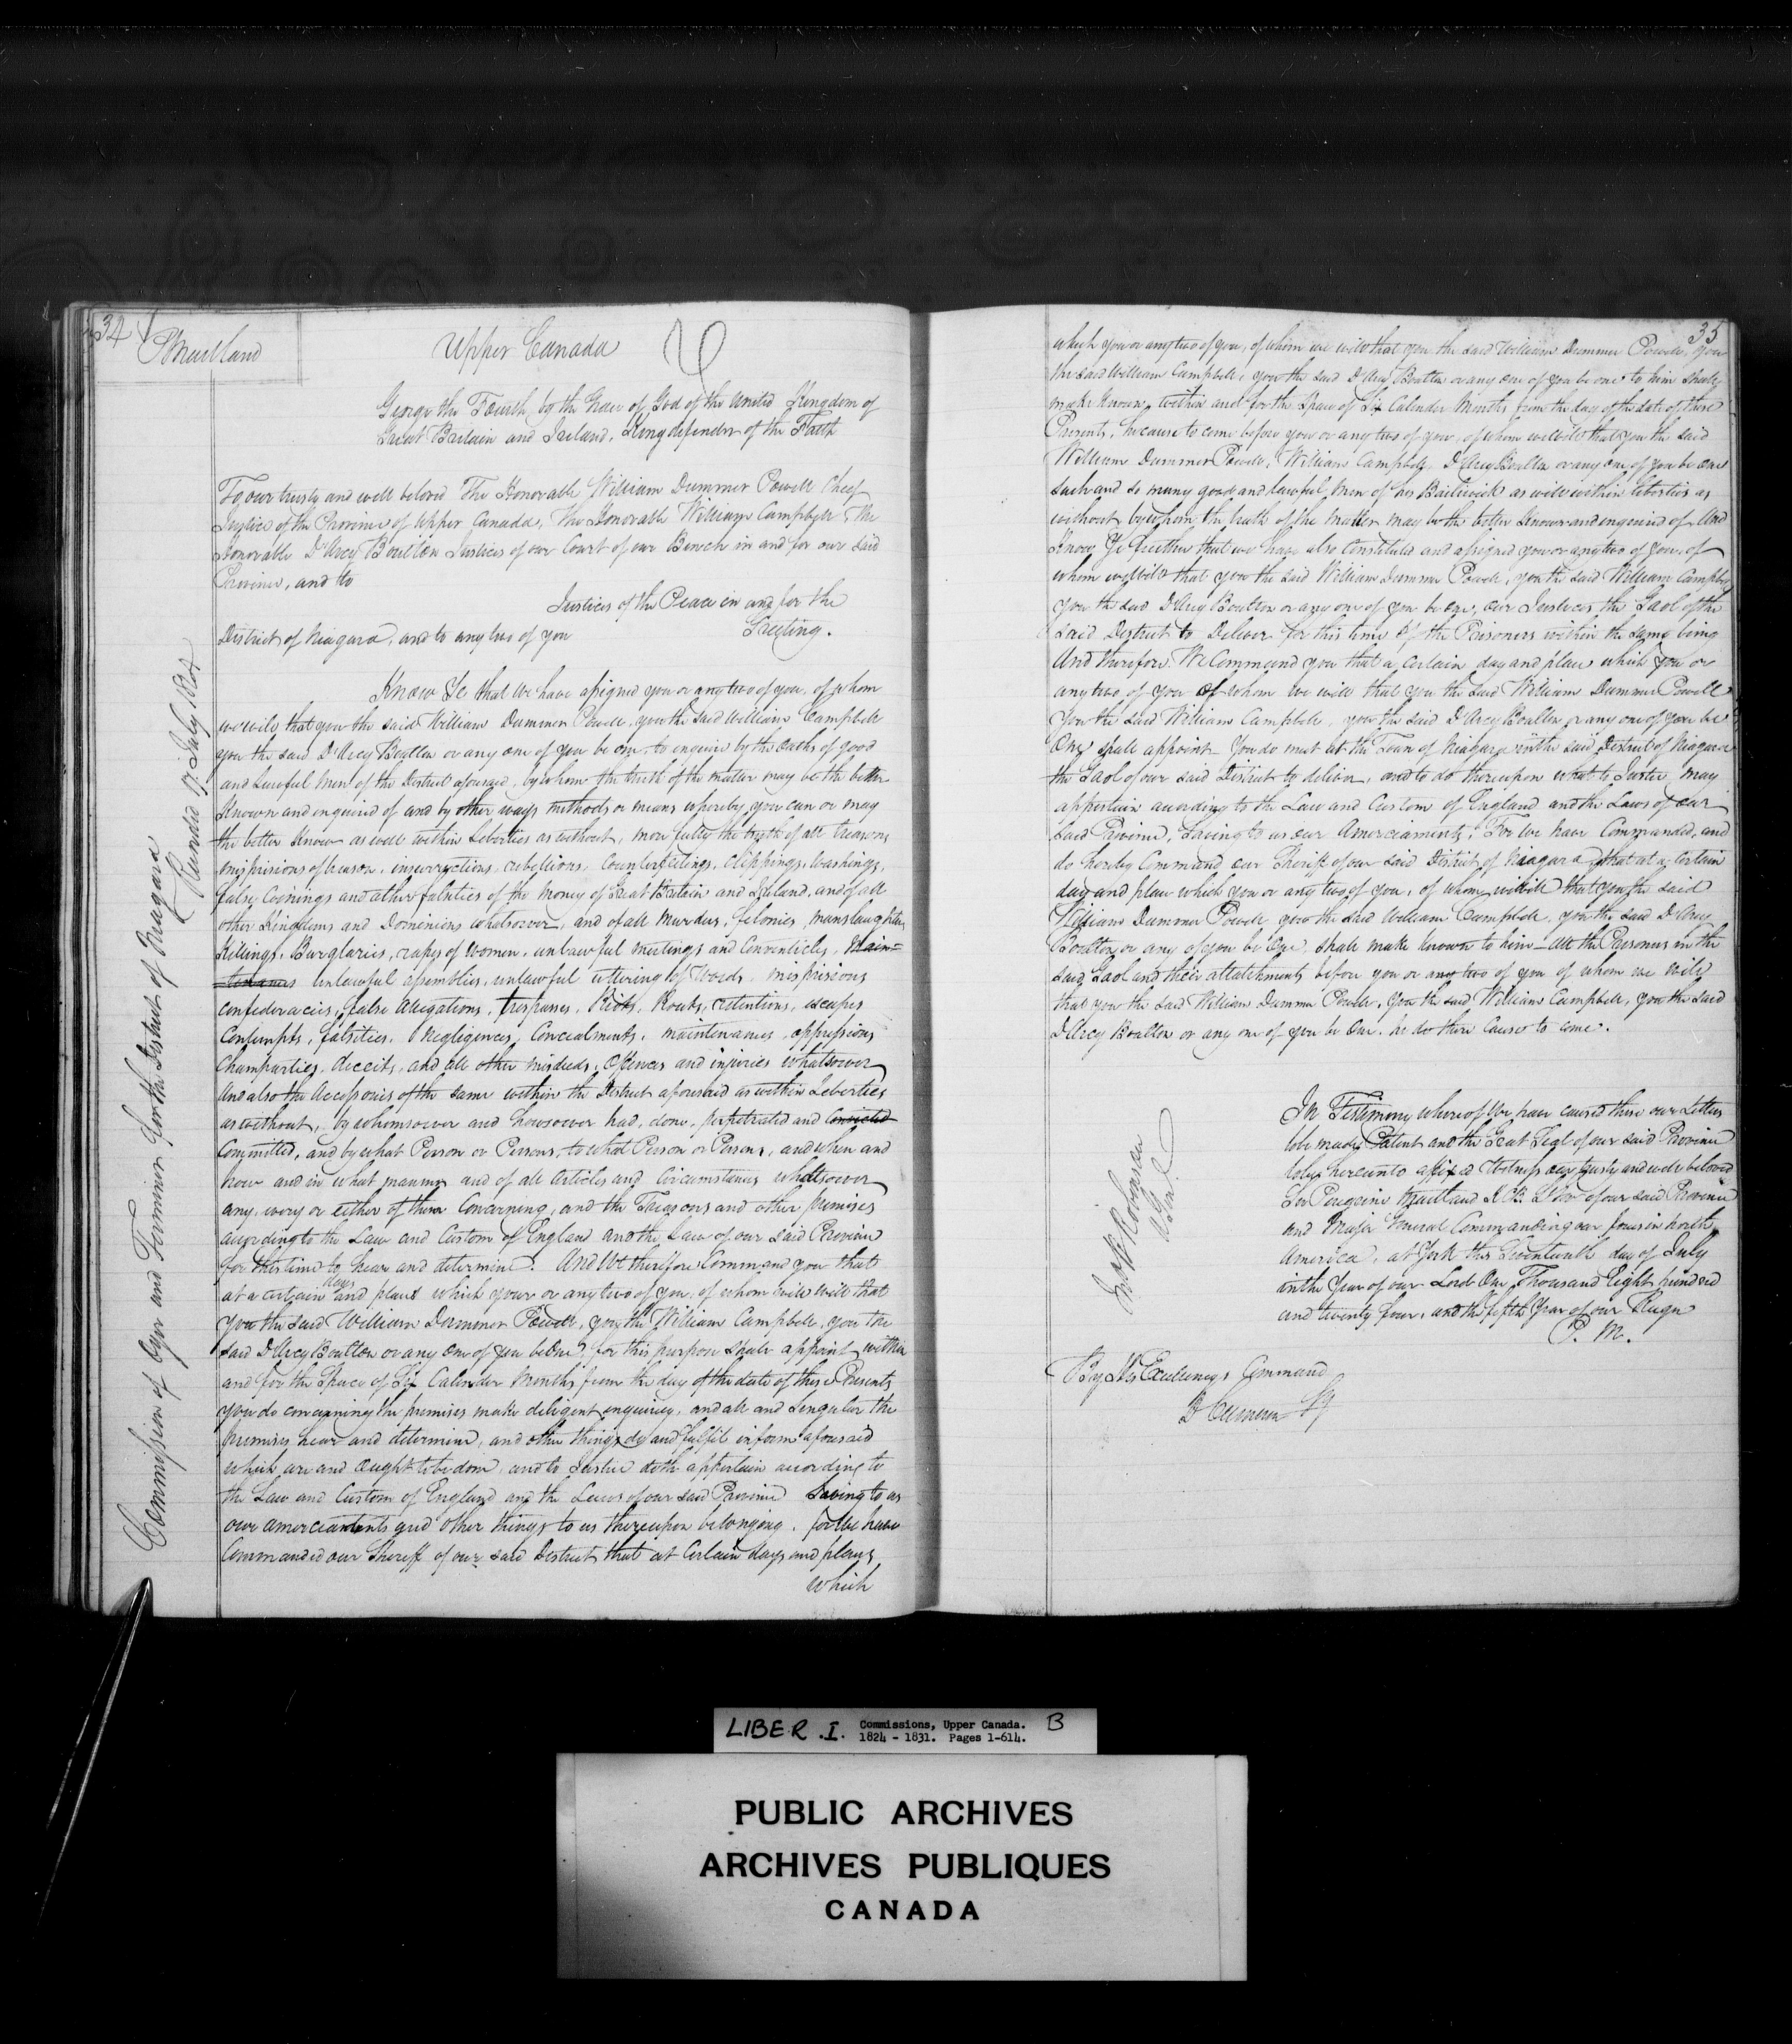 34
PMaitland
Upper Canada
George the Fourth, by the Grace of God of the United Kingdom of
Great Britain and Ireland, King defender of the Faith
To our trusty and well beloved The Honorable William Dummer Powell Cheef
Justice of the Province of Upper Canada, The Honorable William Campbell, The
Honorable D'Arcy Boulton Justices of our Court of our Bench in and for our said
Province, and to
Justices of the Peace in and for the
District of Niagara, and to any two of you Greeting.
Know Ye that We have assigned you or any two of you, of whom
we will that you the said William Dummer Powell, you the said William Campbell
you the said D'Arcy Boulton or any one of you be one, to enquire by the oaths of good
and lawful men of the District aforesaid, by whom the truth of the matter may be the better
Known and enquired of and by other ways methods or means whereby you can or may
the better Know as well within Liberties as without, more fully the truth of all treasons,
misprisions of treason, insurrections, rebellions, Counterfeitings, Clippings, Washings,
false Coinings and other falsities of the money of Great Britain and Ireland, and of all
other Kingdoms and Dominions whatsoever, and of all Murders, felonies, manslaughters,
Killings, Burglaries, rapes of women, unlawful meetings and Conventicles, Main=
tenances unlawful assemblies, unlawful uttering of Words, misprisions
confederacies, false Allegations, trespasses, Riots, Routs, retentions, escapes
Contempts, falsities, Negligences, Concealments, maintenances, oppressions
Champarties, deceits, and all other misdeeds, Offences and injuries whatsoever
And also the Accessories of the same within the District aforesaid as within Liberties
as without, by whomsoever and howsoever had, done, perpetrated and Convicted
Committed, and by what Person or Persons, to what Person or Persons, and when and
how and in what manner and of all Articles and Circumstances whatsoever
any, every or either of them Concerning, and the Treasons and other premises
according to the Law and Custom of England and the Law of our said Province
for this time to hear and determine. And We therefore Command you that
at a certain days and places which your or any two of you, of whom will will that
you the said William Dummer Powell, you the William Campbell, you the
said D'Arcy Boulton or any one of you be One, for this purpose shall appoint, within
and for the Space of Six Calender Months from the day of the date of these Presents
you do concerning the premises make deligent enquiries, and all and Singular the
premises hear and determine, and other things do and fulfil in form aforesaid
which are and Ought to be done, and to Justice doth appertain according to
the Law and Custom of England and the Laws of our said Province Saving to us
our amerciaments and other things to us thereupon belonging. for We have
Commanded our Sheriff of our said District that at Certain days and places,
which
Commission of Oyer and Terminer for the District of Niagara
Recorded 17 July 1824
35
which you or any two of you, of whom we will that you the said William Dummer Powell, you
the said William Campbell, you the said D'Arcy Boulton or any one of you be one to him shall
make known, within and for the Space of Six Calender Months from the day of the date of these
Presents, he cause to come before you or any two of you, of whom we will that you the said
William Dummer Powell, William Campbell, D'Arcy Boulton or any one of you be one
such and so many good and lawful men of his Bailiwick as well within liberties as
without, by whom the truth of the matter may be the better Known and enquired of. And
Know Ye further that we have also Constituted and assigned you or any two of you, of
whom we will that you the said William Dummer Powell, you the said William Campbell
you the said D'Arcy Boulton or any one of you be one, our Justices the Gaol of the
said District to Deliver for this time of the Prisoners within the same being
And therefore We Command you that a certain day and place which you or
any two of you of whom we will that you the said William Dummer Powell
you the said William Campbell, you the said D'Arcy Boulton or any one of you be
One, shall appoint You do meet at the Town of Niagara in the said District of Niagara
the Gaol of our said District to deliver, and to do thereupon what to Justice may
appertain according to the Law and Custom of England and the Laws of our
said Province, Saving to us our Amerciaments. For we have Commanded, and
do hereby Command our Sheriff of our said District of Niagara, that at a Certain
day and place which you or any two of you, of whom we will that you the said
William Dummer Powell, you the said William Campbell, you the said D'Arcy
Boulton or any of you be One, shall make known to him all the Prisoners in the
said Gaol and their attatchments before you or any two of you of whom we will
that you the said William Dummer Powell, you the said William Campbell, you the said
D'Arcy Boulton or any one of you be One. he do there Cause to come.
In Testimony whereof We have caused these our Letters
to be made Patent and the Great Seal of our said Province
to be hereunto affixed Witness our trusty and well beloved
Sir Peregrine Maitland K.C.B. Lt Gov of our said Province
and Major General Commanding our forces in North
America, at York this Seventeenth day of July
in the Year of our Lord One Thousand Eight hundred
and twenty four, and the fifth Year of our Reign
P. M.
Jno B Robinson
A. Genl.
By His Excellencys Command
D Cameron Sy
LIBER .I. Commissions, Upper Canada. B
1824 - 1831. Pages 1-614.
PUBLIC ARCHIVES
ARCHIVES PUBLIQUES
CANADA